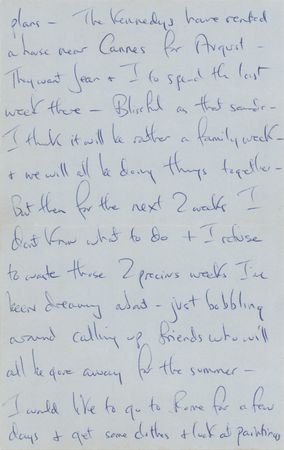 plans - The Kennedys have rented
a house near Cannes for August -
They want Jean + I to spend the last
week there - Blissful as that sounds -
I think it will be rather a family week -
+ we will all be doing things together -
But then for the next 2 weeks I
don't know what to do + I refuse
to waste those 2 precious weeks I've
been dreaming about - just babbling
around calling up friends who will
all be gone away for the summer -
I would like to go to Rome for a few
days + get some clothes + look at paintings